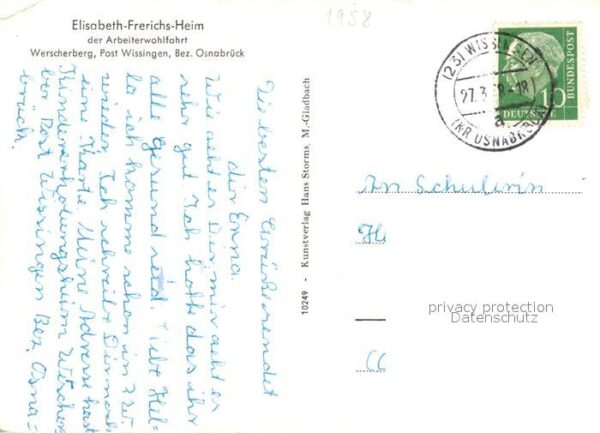 Elisabeth-Frerichs-Heim
der Arbeiterwohlfahrt
Werscherberg, Post Wissingen, Bez. Osnabrück
1958
(23) WISSINGEN
27.3.58-18
a
(KR. OSNABRÜCK)
10
DEUTSCHE
BUNDESPOST
Die besten Grüße sendet
dir Enna.
Wie geht es Dir mir geht es
sehr gut. Ich hoffe das ihr
alle gesund seid. Liebe Hel-
la ich komme schon in 2 W.
wieder. Ich schreibe Dir noch
eine Karte Meine Adresse hast
Kindererholungsheim Wescher
ber Post Wissingen Bez. Osna=
brück.
10249 - Kunstverlag Hans Storms, M.-Gladbach
An Schülerin
He
privacy protection
Datenschutz